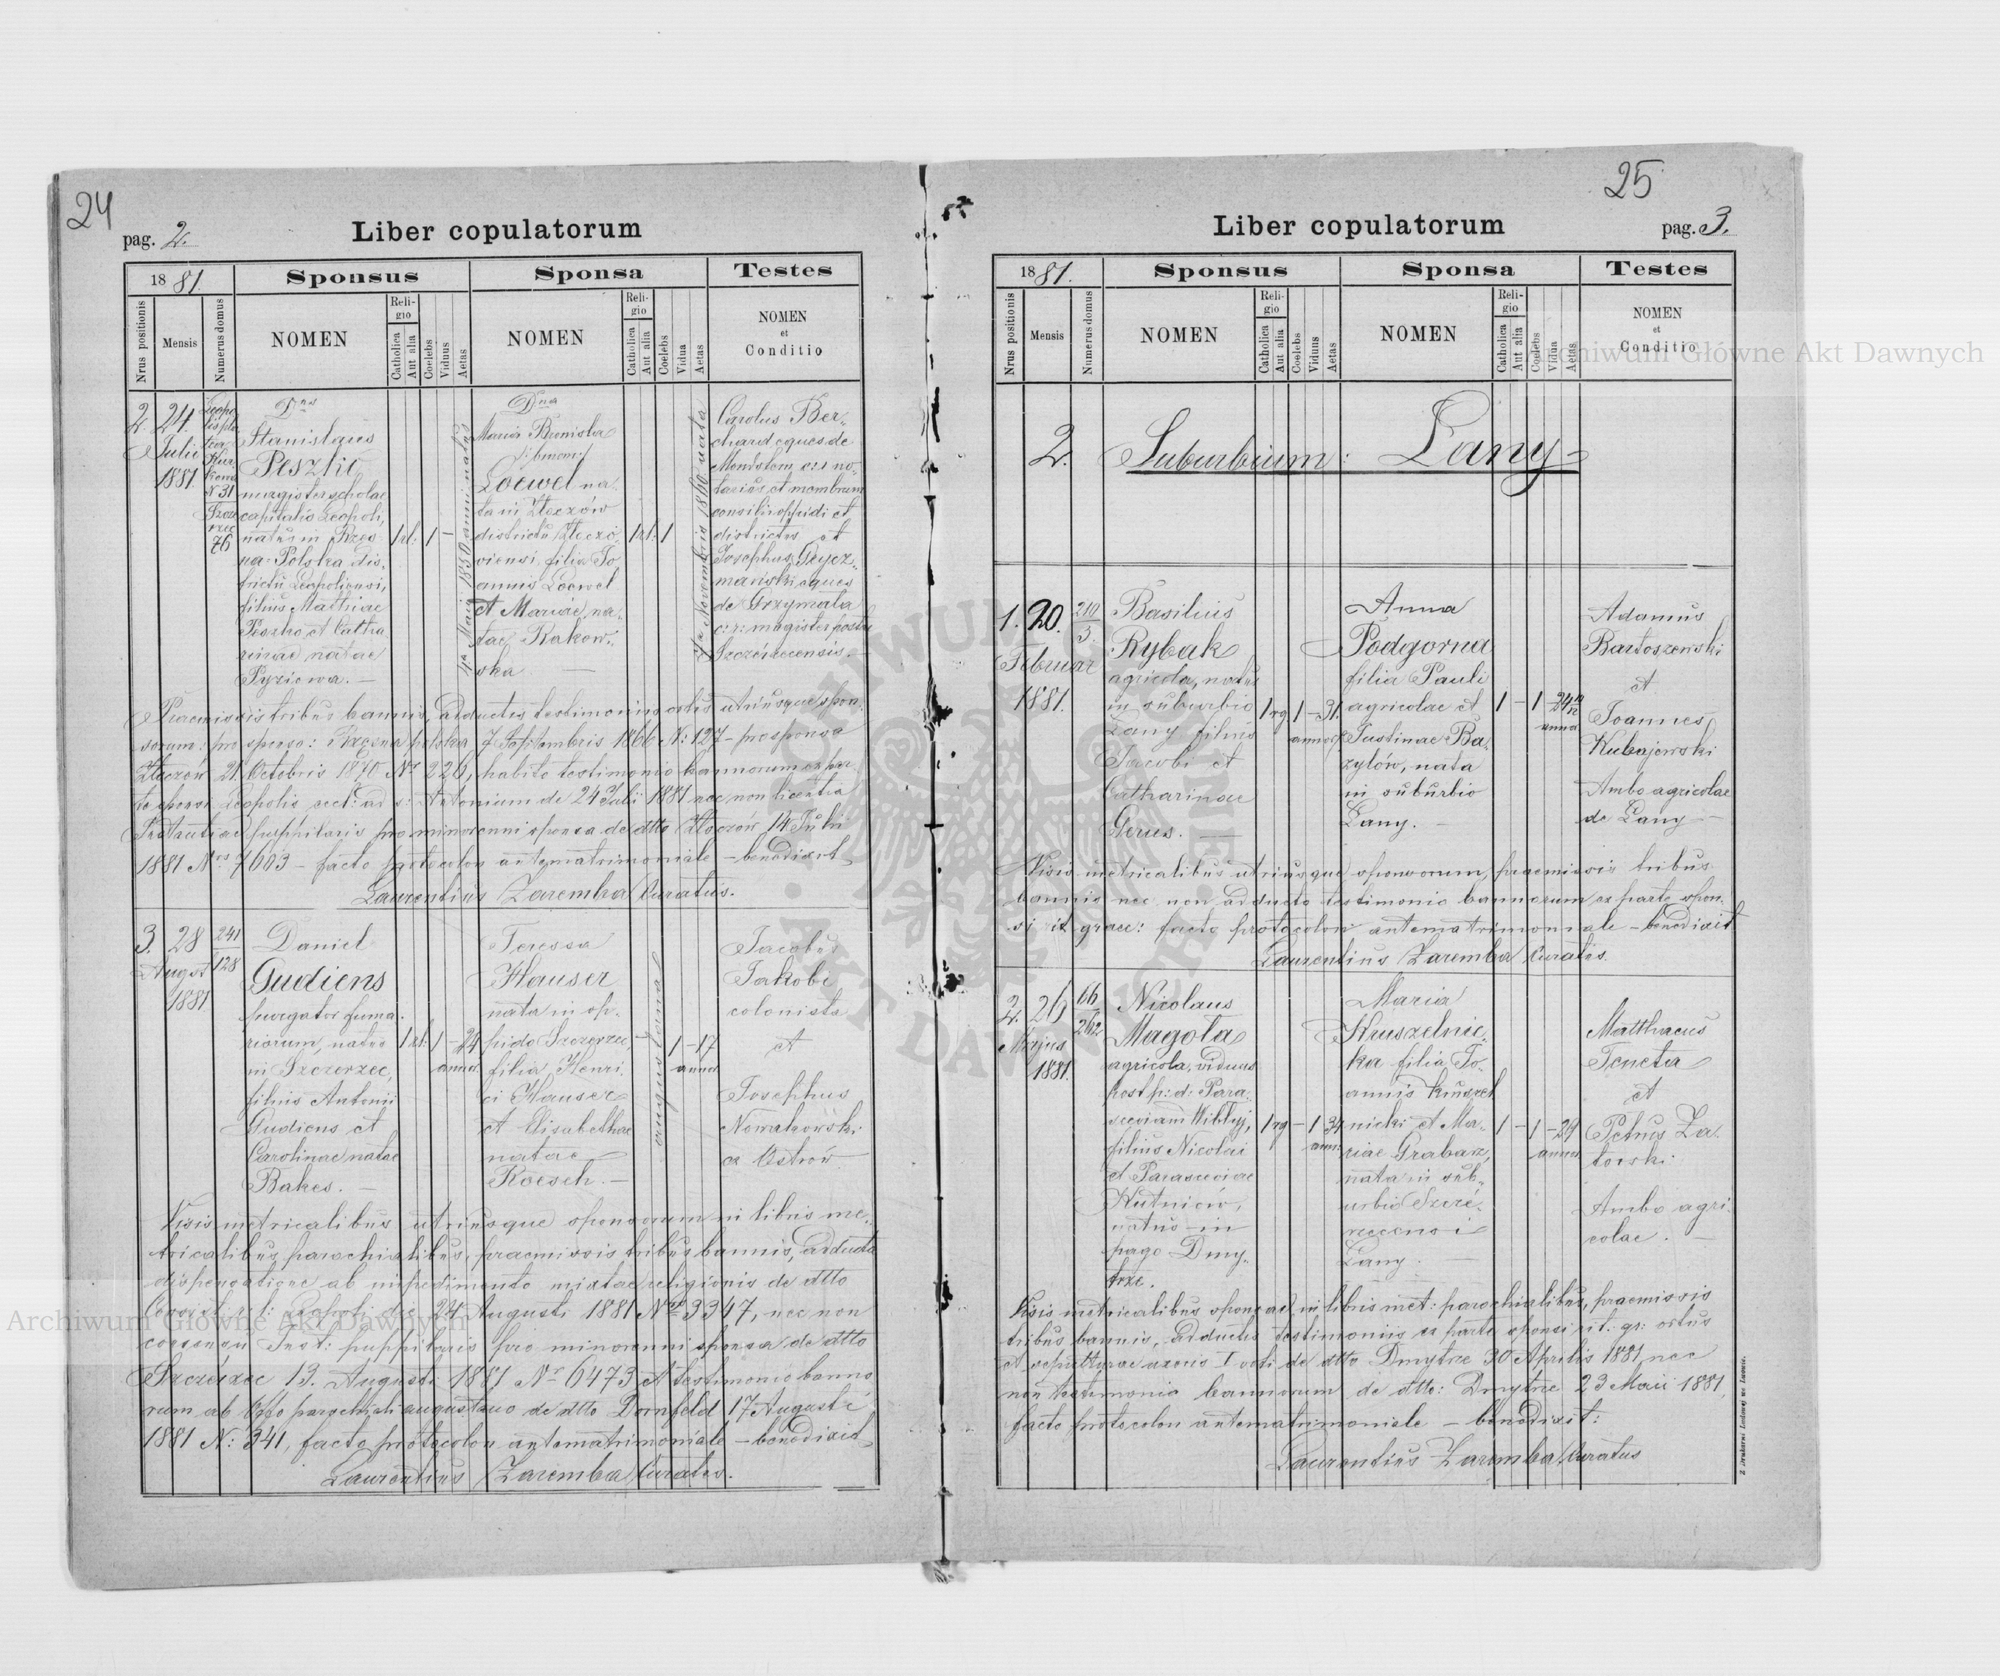 24
pag. 2.
Liber copulatorum
18 81.
Sponsus
Sponsa
Testes
Nrus positionis
Mensis
Numerus domus
NOMEN
Religio
Catholica
Aut alia
Coelebs
Viduus
Aetas
NOMEN
Religio
Catholica
Aut alia
Coelebs
Vidua
Aetas
NOMEN
et
Conditio
2.
24
Julii
1881.
N 31
76
Dnus
Stanislaus
Peszko
magister scholae
capitalis Leopoli,
natus in Rzęs
na Polska dis-
trictu Leopoliensi,
filius Mathiae
Peszko et Catha
rinae natae
Pyziowa. —
1 rl: 1 —
Dna
Maria Bronisława
Loewel na-
ta in Złoczów
districtu Złoczo-
viensi, filia Jo-
annis Loewel
et Mariae, na-
tae Rakow-
ska —
1 rl: 1
Carolus Ber-
chard eques de
no-
tarius et membrum
consilii oppidi et
districtus et
Josephus
eques
de Grzymała
c: r: magister postae
Szczerecensis. —
Praemissis tribus bannis, adductis testimoniis ortus utriusque spon-
sorum: pro sponso: Rzęsna polska 7 Septembris 1866 N: 127 — pro sponsa
Złoczów 21 Octobris 1870 Nr 226, habito testimonio bannorum ex par-
te sponsi Leopolis eccl: ad s: Antonium de 24 Julii 1881 nec non licentia
pupilaris pro minorenni sponsa de dtto Złoczów 14 Julii
1881 Nro 7603 — facto protocolon antematrimoniale — benedixit
Laurentius Zaremba Curatus.
3.
28
August
1881
241
128
Daniel
Gudiens
purgator fuma-
riorum, natus
in Szczerzec,
filius Antonii
Gudiens et
Carolinae natae
Bakes. —
1 rl: 1 — 24
annor.
Teressa
Hauser
nata in op-
pido Szczerzec,
filia Henri-
ci Hauser
et Elisabethae
natae
Roesch. —
augustana
1 — 17
annor
Jacobus
Jakobi
colonista
et
Josephus
Nowakowski
ex Ostrów
Visis metricalibus utriusque sponsorum in libris me-
tricalibus parochialibus, praemissis tribus bannis, adducta
dispensatione ab impedimento mixtae religionis de dtto
Consist. r. l: Leopoli die 24 Augusti 1881 Nro 3347, nec non
consensu Inst: puppilaris pro minorenni sponsa de dtto
Szczerzec 13. Augusti 1881 Nr 6473 et testimonio banno
rum ab Offo parochiali augustano de dtto Dornfeld 17 Augusti
1881 N: 341, facto protocolon antematrimoniale — benedixit
Laurentius Zaremba Curatus.
25
Liber copulatorum
pag. 3.
18 81.
Sponsus
Sponsa
Testes
Nrus positionis
Mensis
Numerus domus
NOMEN
Religio
Catholica
Aut alia
Coelebs
Viduus
Aetas
NOMEN
Religio
Catholica
Aut alia
Coelebs
Vidua
Aetas
NOMEN
et
Conditio
2. Suburbium: Łany —
1.
20.
Februar
1881.
210
3.
Basilius
Rybak
agricola, natus
in suburbio
Łany filius
Jacobi et
Catharinae
Gerus. —
1 rg 1 — 31.
annor
Anna
Podgorna
filia Pauli
agricolae et
Justinae Ba-
zylów, nata
in suburbio
Łany. —
1 — 1 — 24
annor
Adamus
Bartoszewski
et
Joannes
Kubajewski
Ambo agricolae
de Łany —
Visis metricalibus utriusque sponsorum, praemissis tribus
bannis nec non adducto testimonio bannorum ex parte spon-
si rit graec: facto protocolon antematrimoniale — benedixit
Laurentius Zaremba Curatus.
2.
26
Majus
1881.
66
262
Nicolaus
Magota
agricola, viduus
post p: d: Para-
sceviam
filius Nicolai
et Parasceviae
Hutniców,
natus in
pago Dmy-
trze.
1 rg — 1 34
annor
Maria
Kruszelnic-
ka filia Jo-
annis Kruszel
nicki et Ma-
riae Grabarz,
nata in sub-
urbio Szcze-
recensi
Łany. —
1 — 1 — 24
annor
Matthaeus
Teneta
et
Petrus Za-
torski
Ambo agri-
colae. —
Visis metricalibus sponsae in libris met: parochialibus, praemissis
tribus bannis, adductis testimoniis ex parte sponsi rit: gr: ortus
et sepulturae uxoris I voti de dtto Dmytrze 30 Aprilis 1881 nec
non testimonio bannorum de dtto: Dmytrze 23 Maii 1881,
facto protocolon antematrimoniale — benedixit:
Laurentius Zaremba Curatus
Z Drukarni Ludowej we Lwowie.
Archiwum Główne Akt Dawnych
Archiwum Główne Akt Dawnych